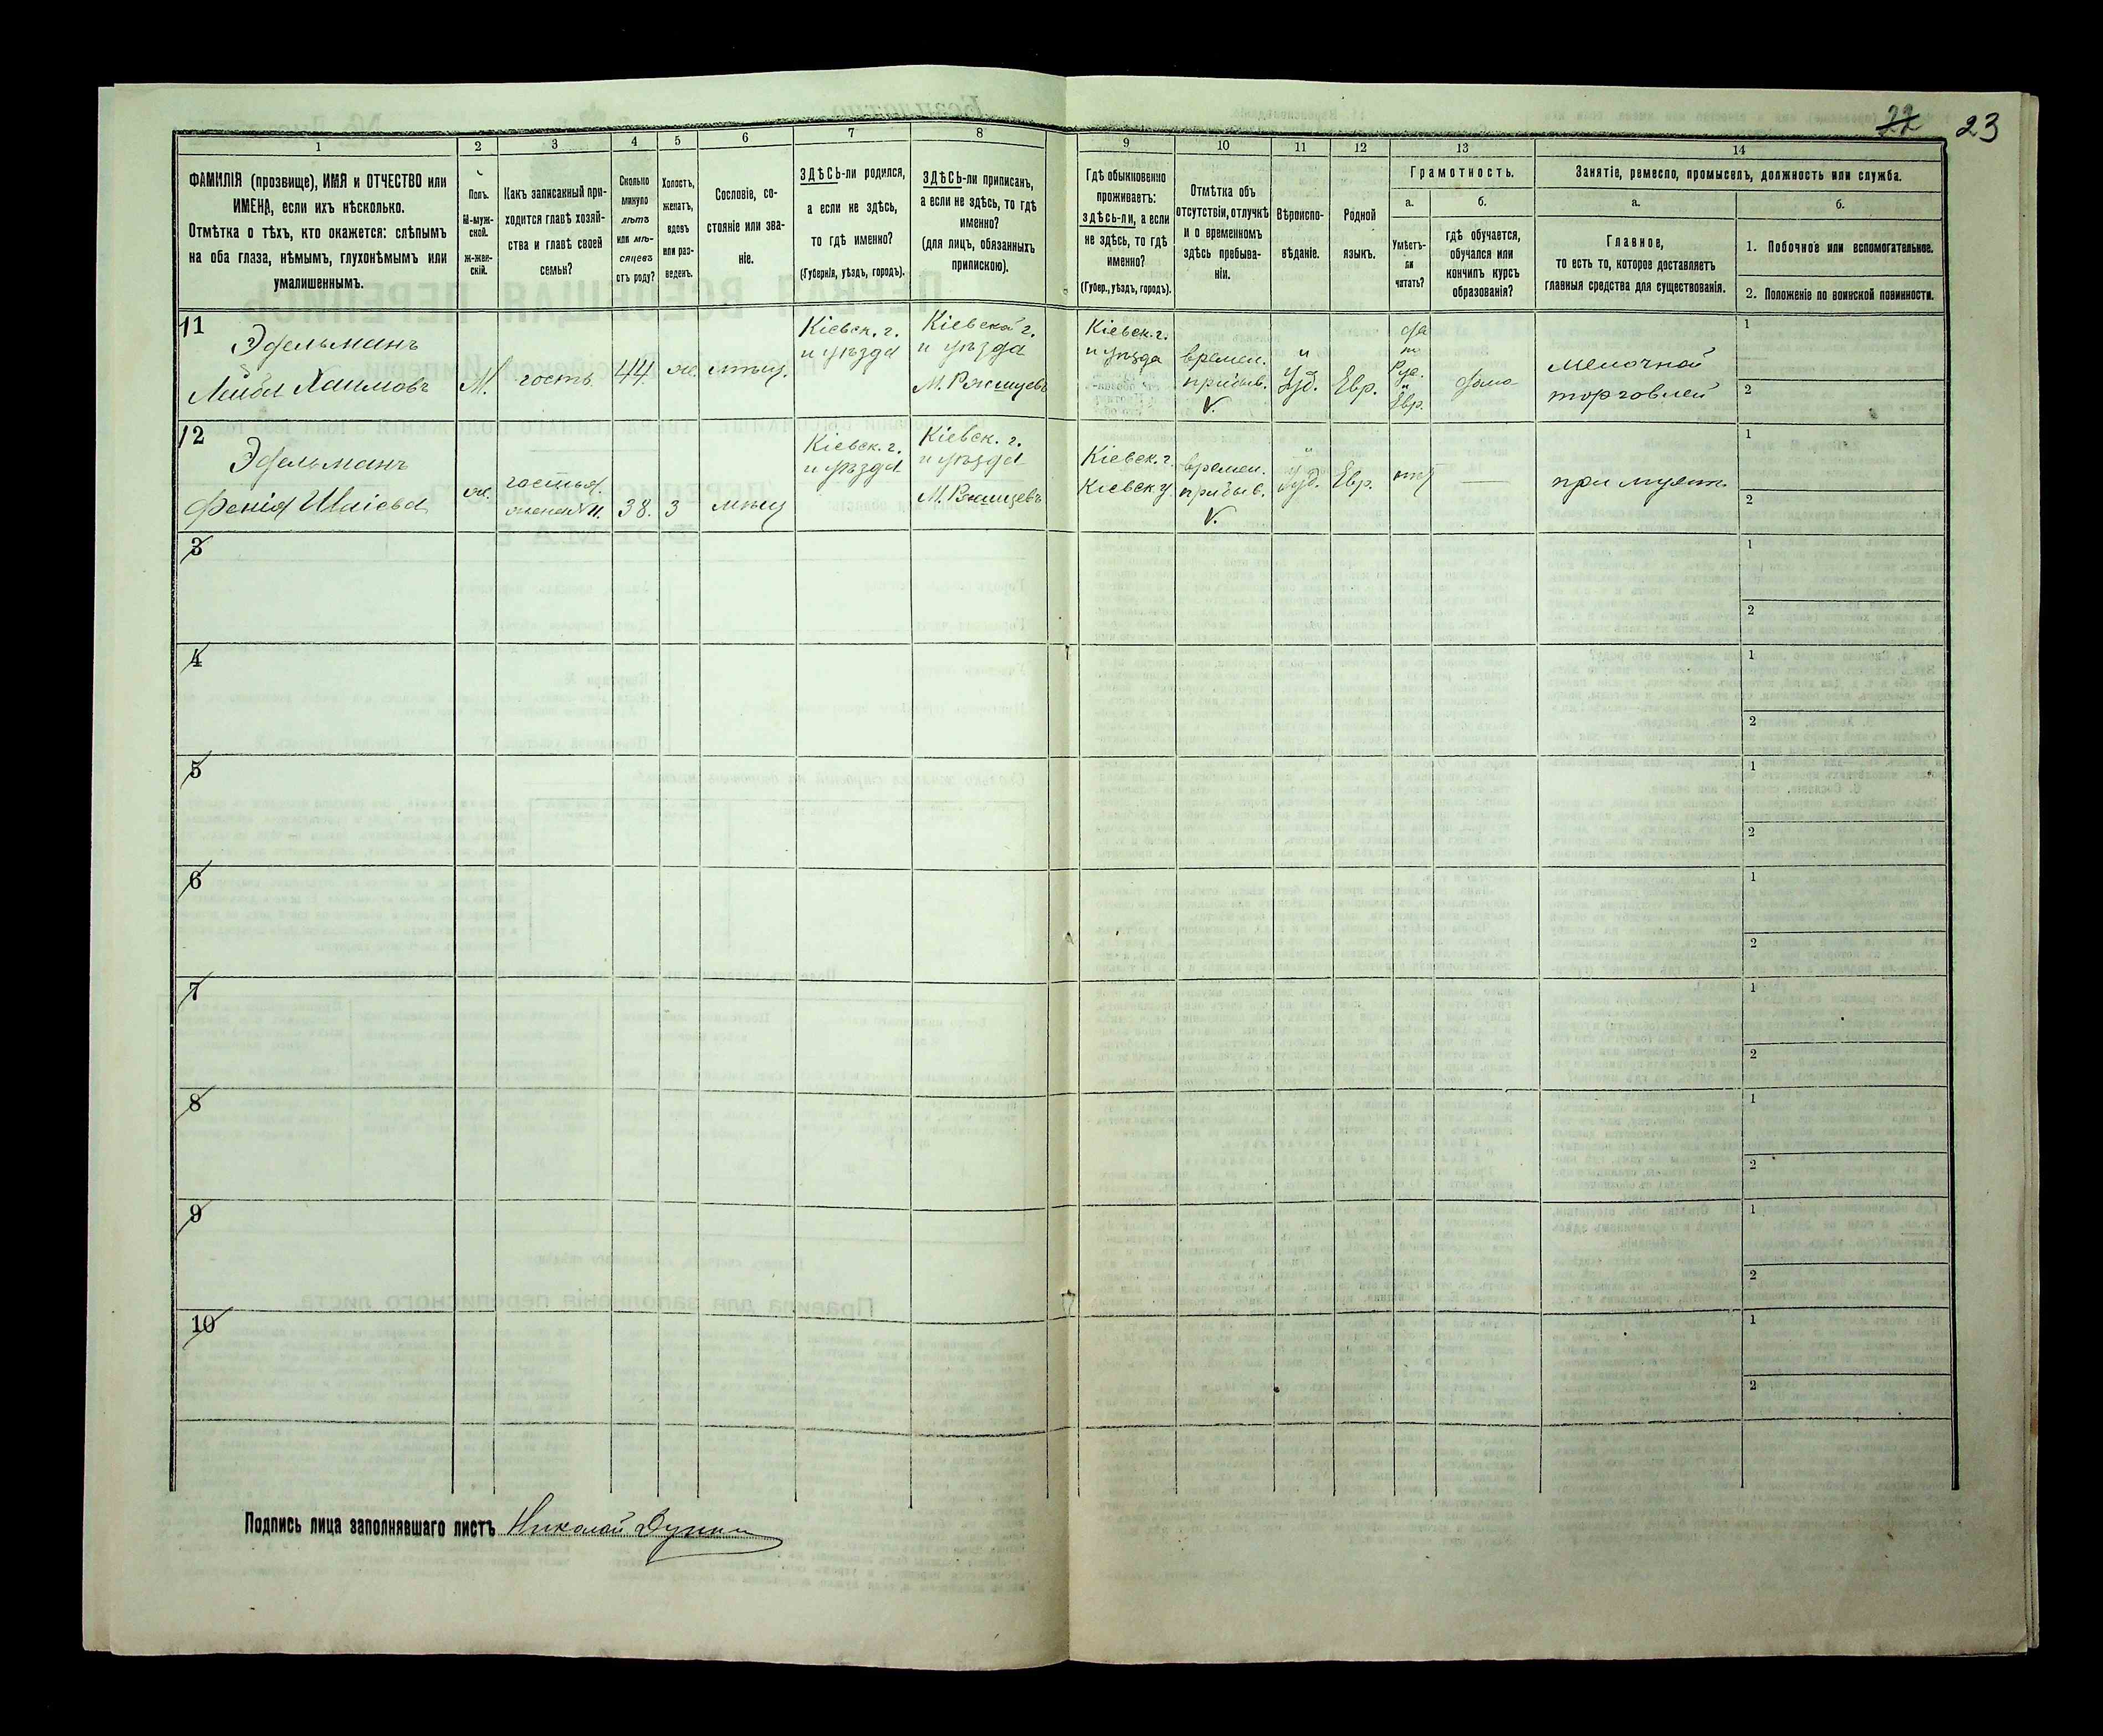 22 23
1 2 3 4 5 6 7 8 9 10 11 12 13 14
ФАМИЛІЯ (прозвище), ИМЯ и ОТЧЕСТВО или
ИМЕНА, если ихъ нѣсколько.
Отмѣтка о тѣхъ, кто окажется: слѣпымъ
на оба глаза, нѣмымъ, глухонѣмымъ или
умалишеннымъ.
Полъ.
М-муж-
ской.
Ж-жен-
скій.
Какъ записанный при-
ходится главѣ хозяй-
ства и главѣ своей
семьи?
Сколько
минуло
лѣтъ
или мѣ-
сяцевъ
отъ роду?
Холостъ,
женатъ,
вдовъ
или раз-
веденъ.
Сословіе, со-
стояніе или зва-
ніе.
ЗДѢСЬ-ли родился,
а если не здѣсь,
то гдѣ именно?
(Губернія, уѣздъ, городъ).
ЗДѢСЬ-ли приписанъ,
а если не здѣсь, то гдѣ
именно?
(для лицъ, обязанныхъ
припискою).
Гдѣ обыкновенно
проживаетъ:
здѣсь-ли, а если
не здѣсь, то гдѣ
именно?
(Губер., уѣздъ, городъ).
Отмѣтка объ
отсутствіи, отлучкѣ
и о временномъ
здѣсь пребыва-
ніи.
Вѣроиспо-
вѣданіе.
Родной
языкъ.
Грамотность.
а.
Умѣетъ-
ли
читать?
б.
гдѣ обучается,
обучался или
кончилъ курсъ
образованія?
Занятіе, ремесло, промыселъ, должность или служба.
а.
Главное,
то есть то, которое доставляетъ
главныя средства для существованія.
б.
1. Побочное или вспомогательное.
2. Положеніе по воинской повинности.
11
Эдельманъ
Лейбл Хаимовъ
М.
гость
44.
ж.
мѣщ.
Кіевск. г.
и уѣзда
Кіевской г.
и уѣзда
М. Ржищевъ
Кіевск. г.
и уѣзда
времен.
прибыв.
V.
Іуд.
Евр.
да
по
Рус.
и
Евр.
дома
мелочной
торговлей
1
2
12
Эдельманъ
Фенія Шаіева
ж.
гостья.
жена № 11.
38.
З
мѣщ
Кіевск. г.
и уѣзда
Кіевск. г.
и уѣзда
М. Ржищевъ
Кіевск. г.
Кіевск у.
времен.
прибыв.
V.
Іуд.
Евр.
нѣт
при мужѣ
1
2
3
1
2
4
1
2
5
1
2
6
1
2
7
1
2
8
1
2
9
1
2
10
1
2
Подпись лица заполнявшаго листъ Николай